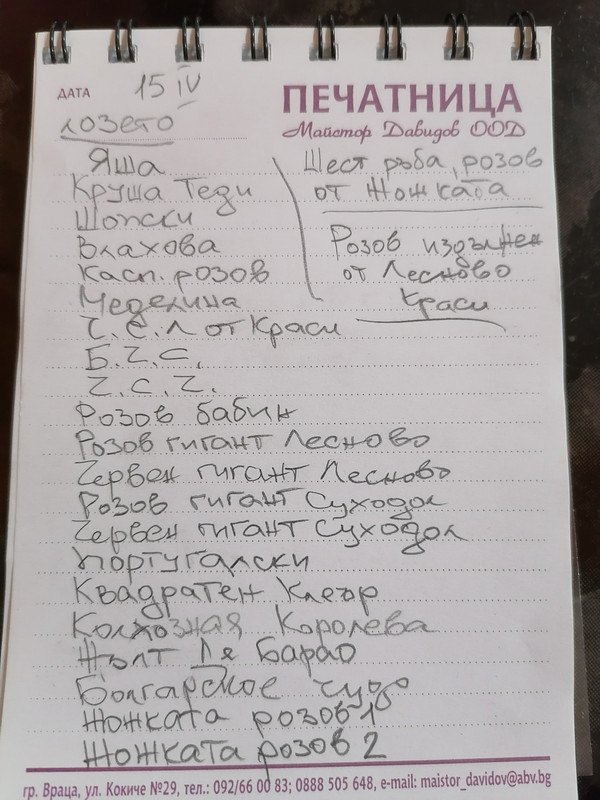 ДАТА 15 IV
ПЕЧАТНИЦА
Майстор Давидов ООД
лозето
Яша
Круша Теди
Шопски
Влахова
Касп. розов
Меделина
Ч.С.Л от Краси
Б.Ч.С.
Ч.С.Ч.
Розов бабин
Розов гигант Лесново
Червен гигант Лесново
Розов гигант Суходол
Червен гигант Суходол
Португалски
Квадратен Клеър
Колхозная Королева
Жълт Де Барао
Болгарское чудо
Жожката розов 1
Жожката розов 2
Шест ръба, розов
от Жожката
Розов издължен
от Лесново
Краси
гр. Враца, ул. Кокиче №29, тел.: 092/66 00 83; 0888 505 648, e-mail: maistor_davidov@abv.bg